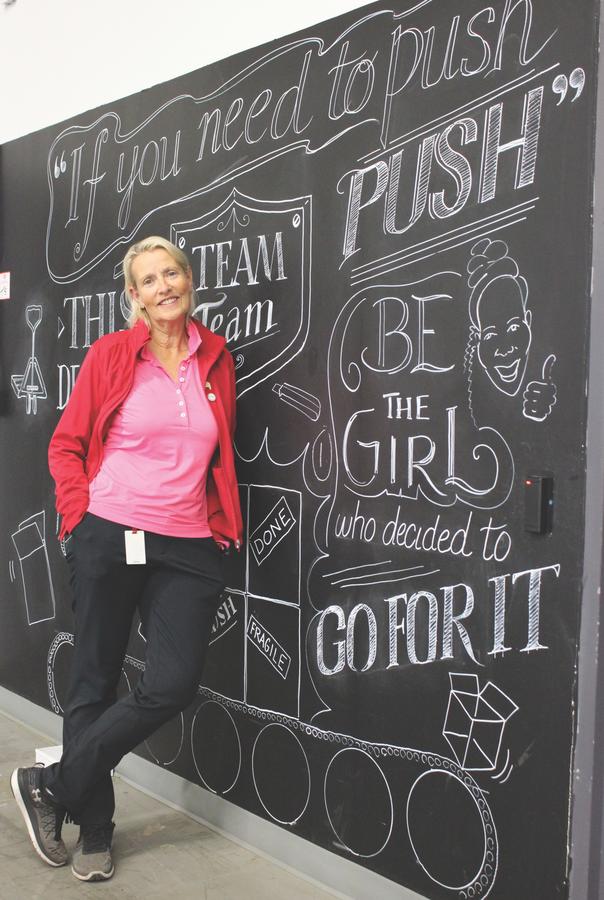 “If you need to push
PUSH”
TEAM
Team
BE
THE
GIRL
who decided to
GO FOR IT
DONE
FRAGILE